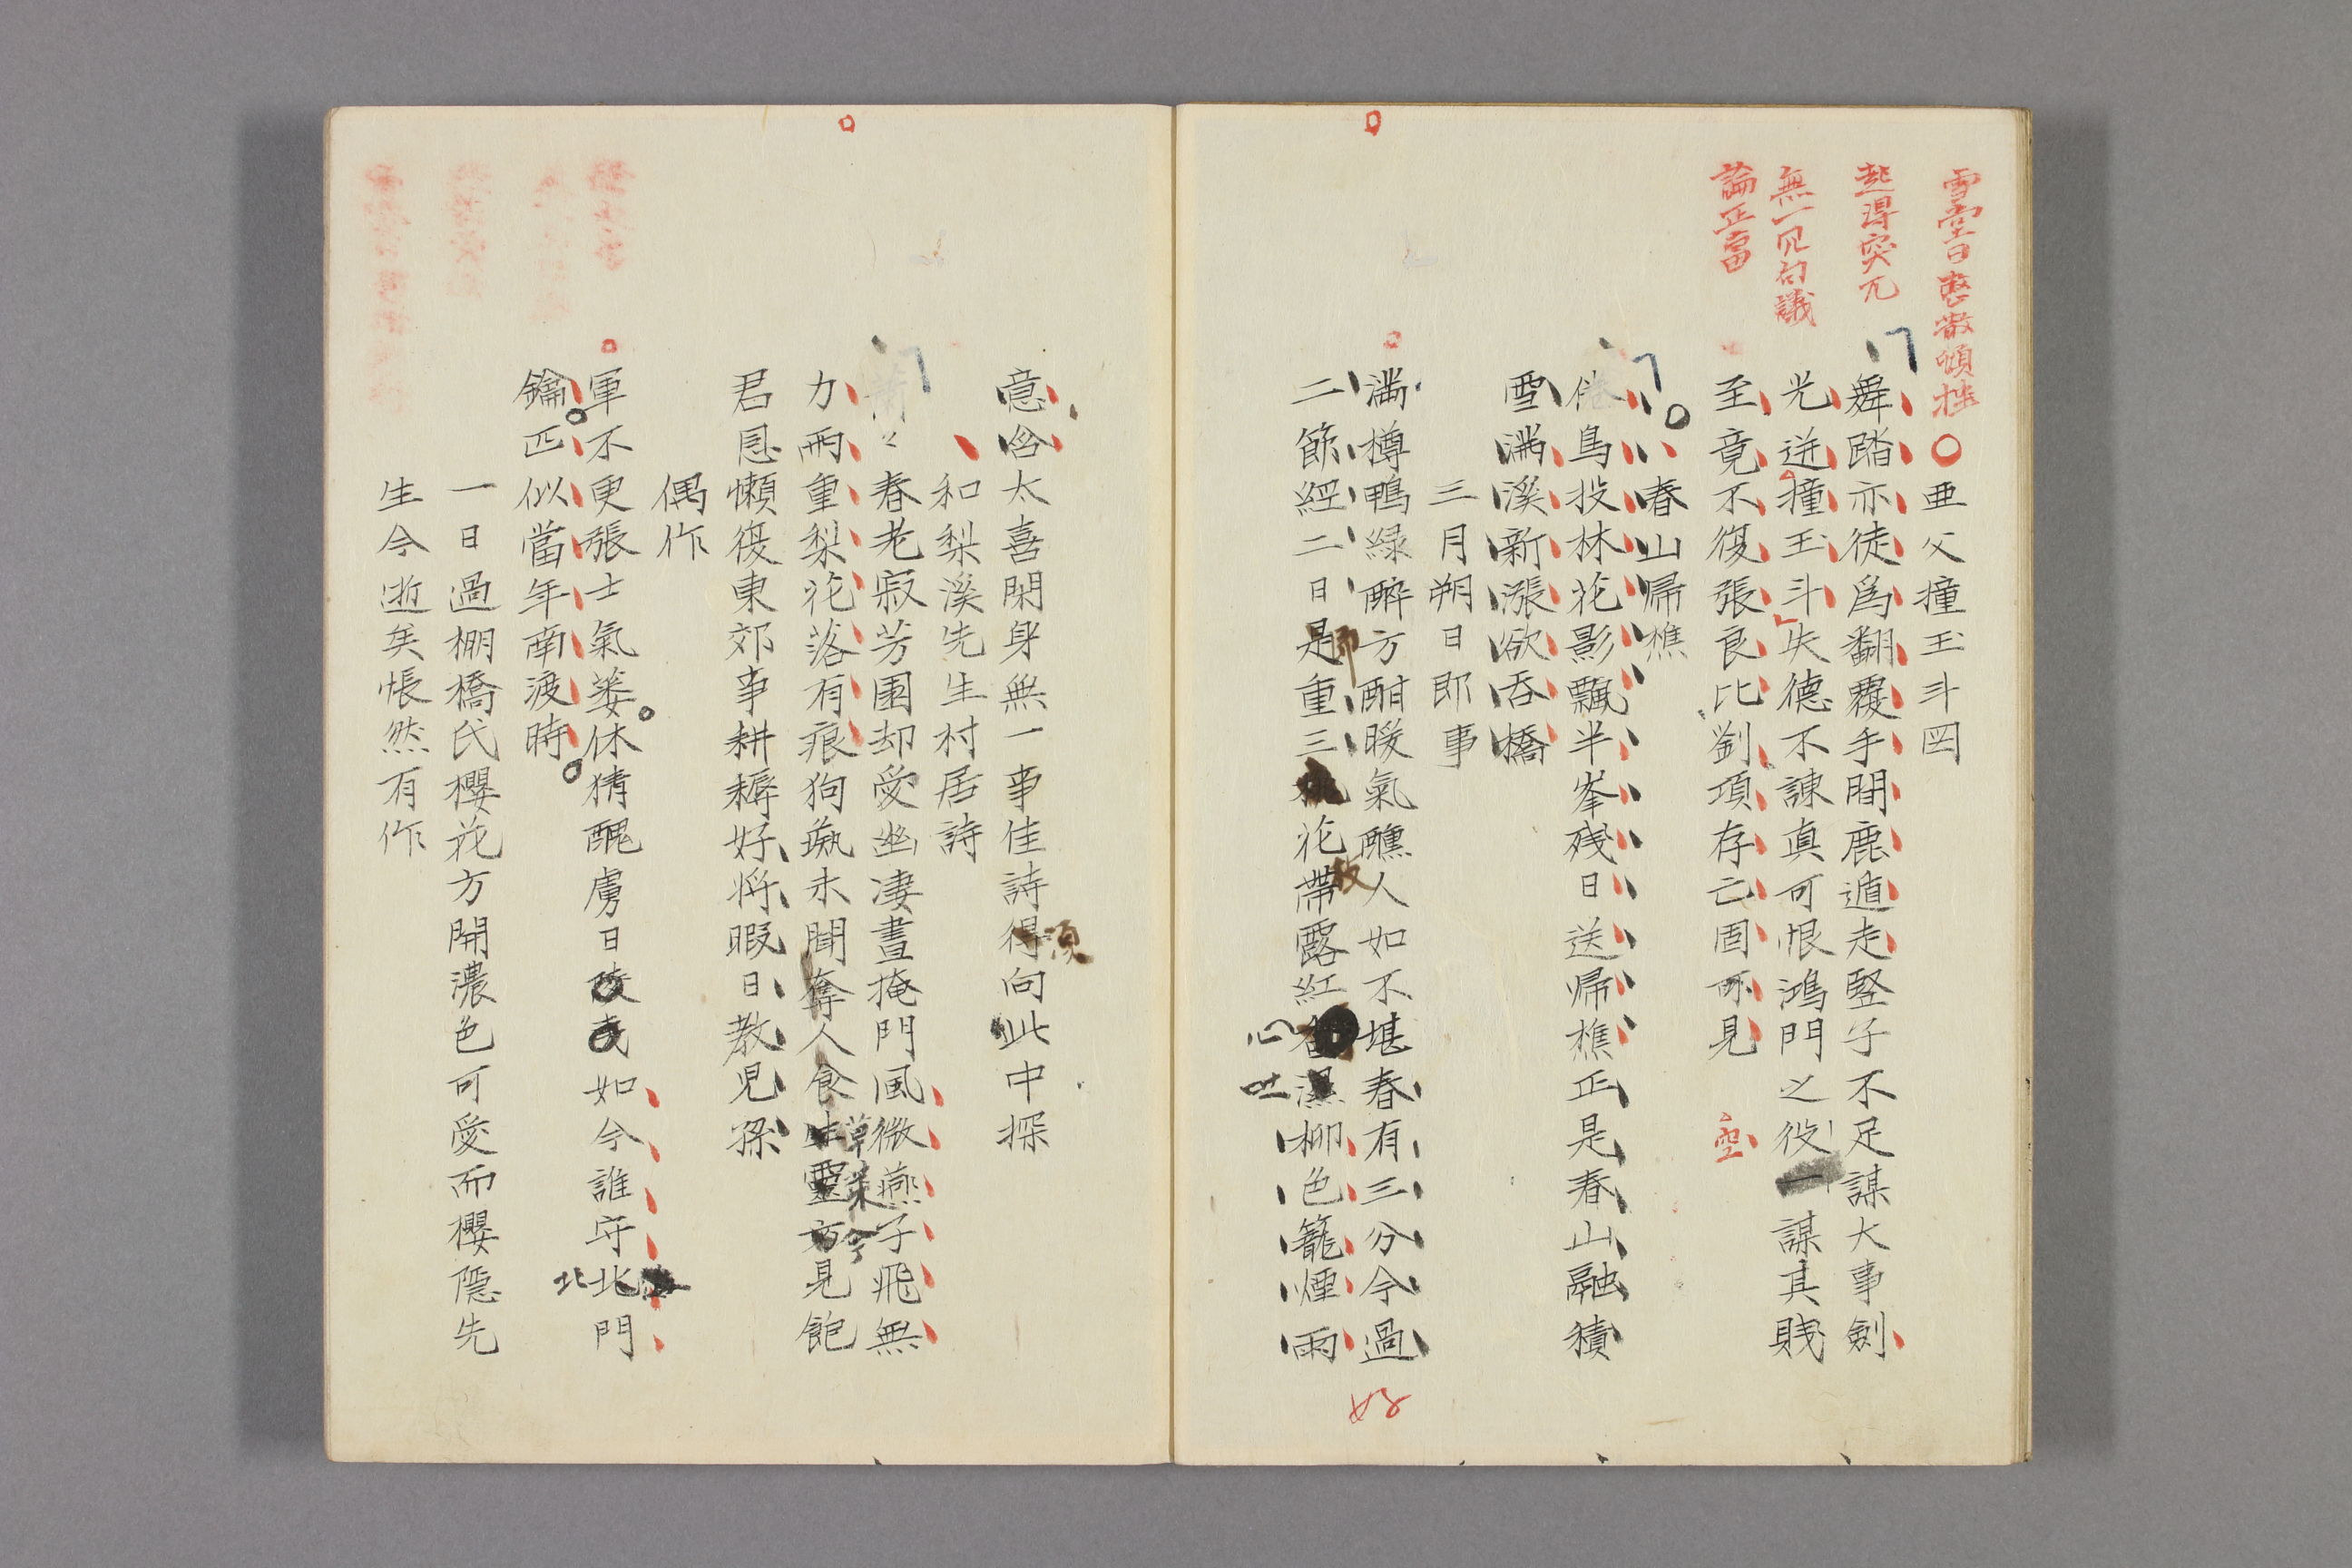 雪堂曰悲歌頓挫
起得突兀
無一冗句議
論正當
亜父撞玉斗図
舞踏亦徒為翻覆手間鹿遁走堅子不足謀大事劍
光迸撞玉斗失德不諌真可恨鴻門之役一謀其賎
至竟不復張良比劉項存亡固可見
空
春山帰樵
倦鳥投林花影飄半峯残日送帰樵正是春山融積
雪満溪新漲欲呑橋
三月朔日即事
満樽鴨緑醉方酣暖氣醺人如不堪春有三分今過
二節經二日是重三桃花帯露紅 濕柳色籠煙雨
心
吐
好
意含太喜閑身無一事佳詩得向此中探
須
和梨溪先生村居詩
春老寂芳園却受幽凄晝掩門風微燕子飛無
力雨重梨花落有痕狗彘未聞奪人食生靈方見飽
草萊今
君恩懶復東郊事耕耨好将暇日教児孫
偶作
軍不更張士氣萎休猜醜虜日 如今誰守北門
北
鑰匹似當年南渡時
一日過棚橋氏櫻花方開濃色可愛而櫻隠先
生今逝矣悵然有作